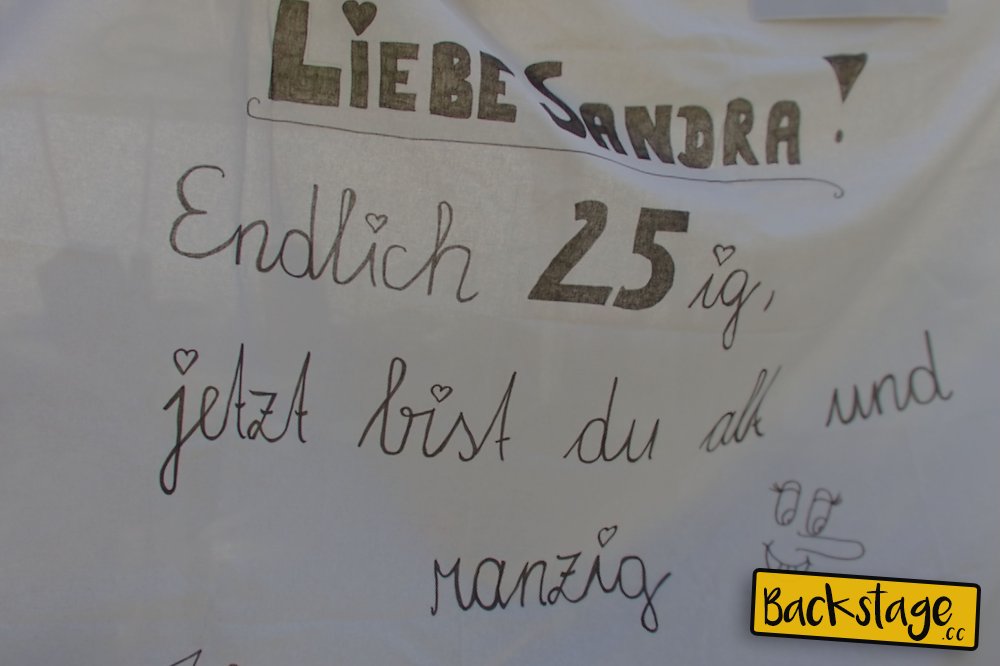 LIEBE SANDRA!
Endlich 25ig,
jetzt bist du alt und
ranzig
Backstage.cc